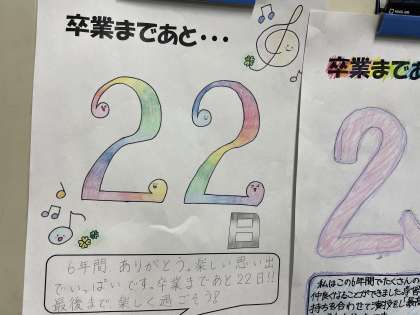 卒業まであと・・・
22
日
6年間 ありがとう。楽しい思い出
でいっぱいです。卒業まであと22日!!
最後まで楽しく過ごそう!
卒業まであ
2
私はこの6年間でたくさんの
仲良くなることができました。
持ちを合わせて